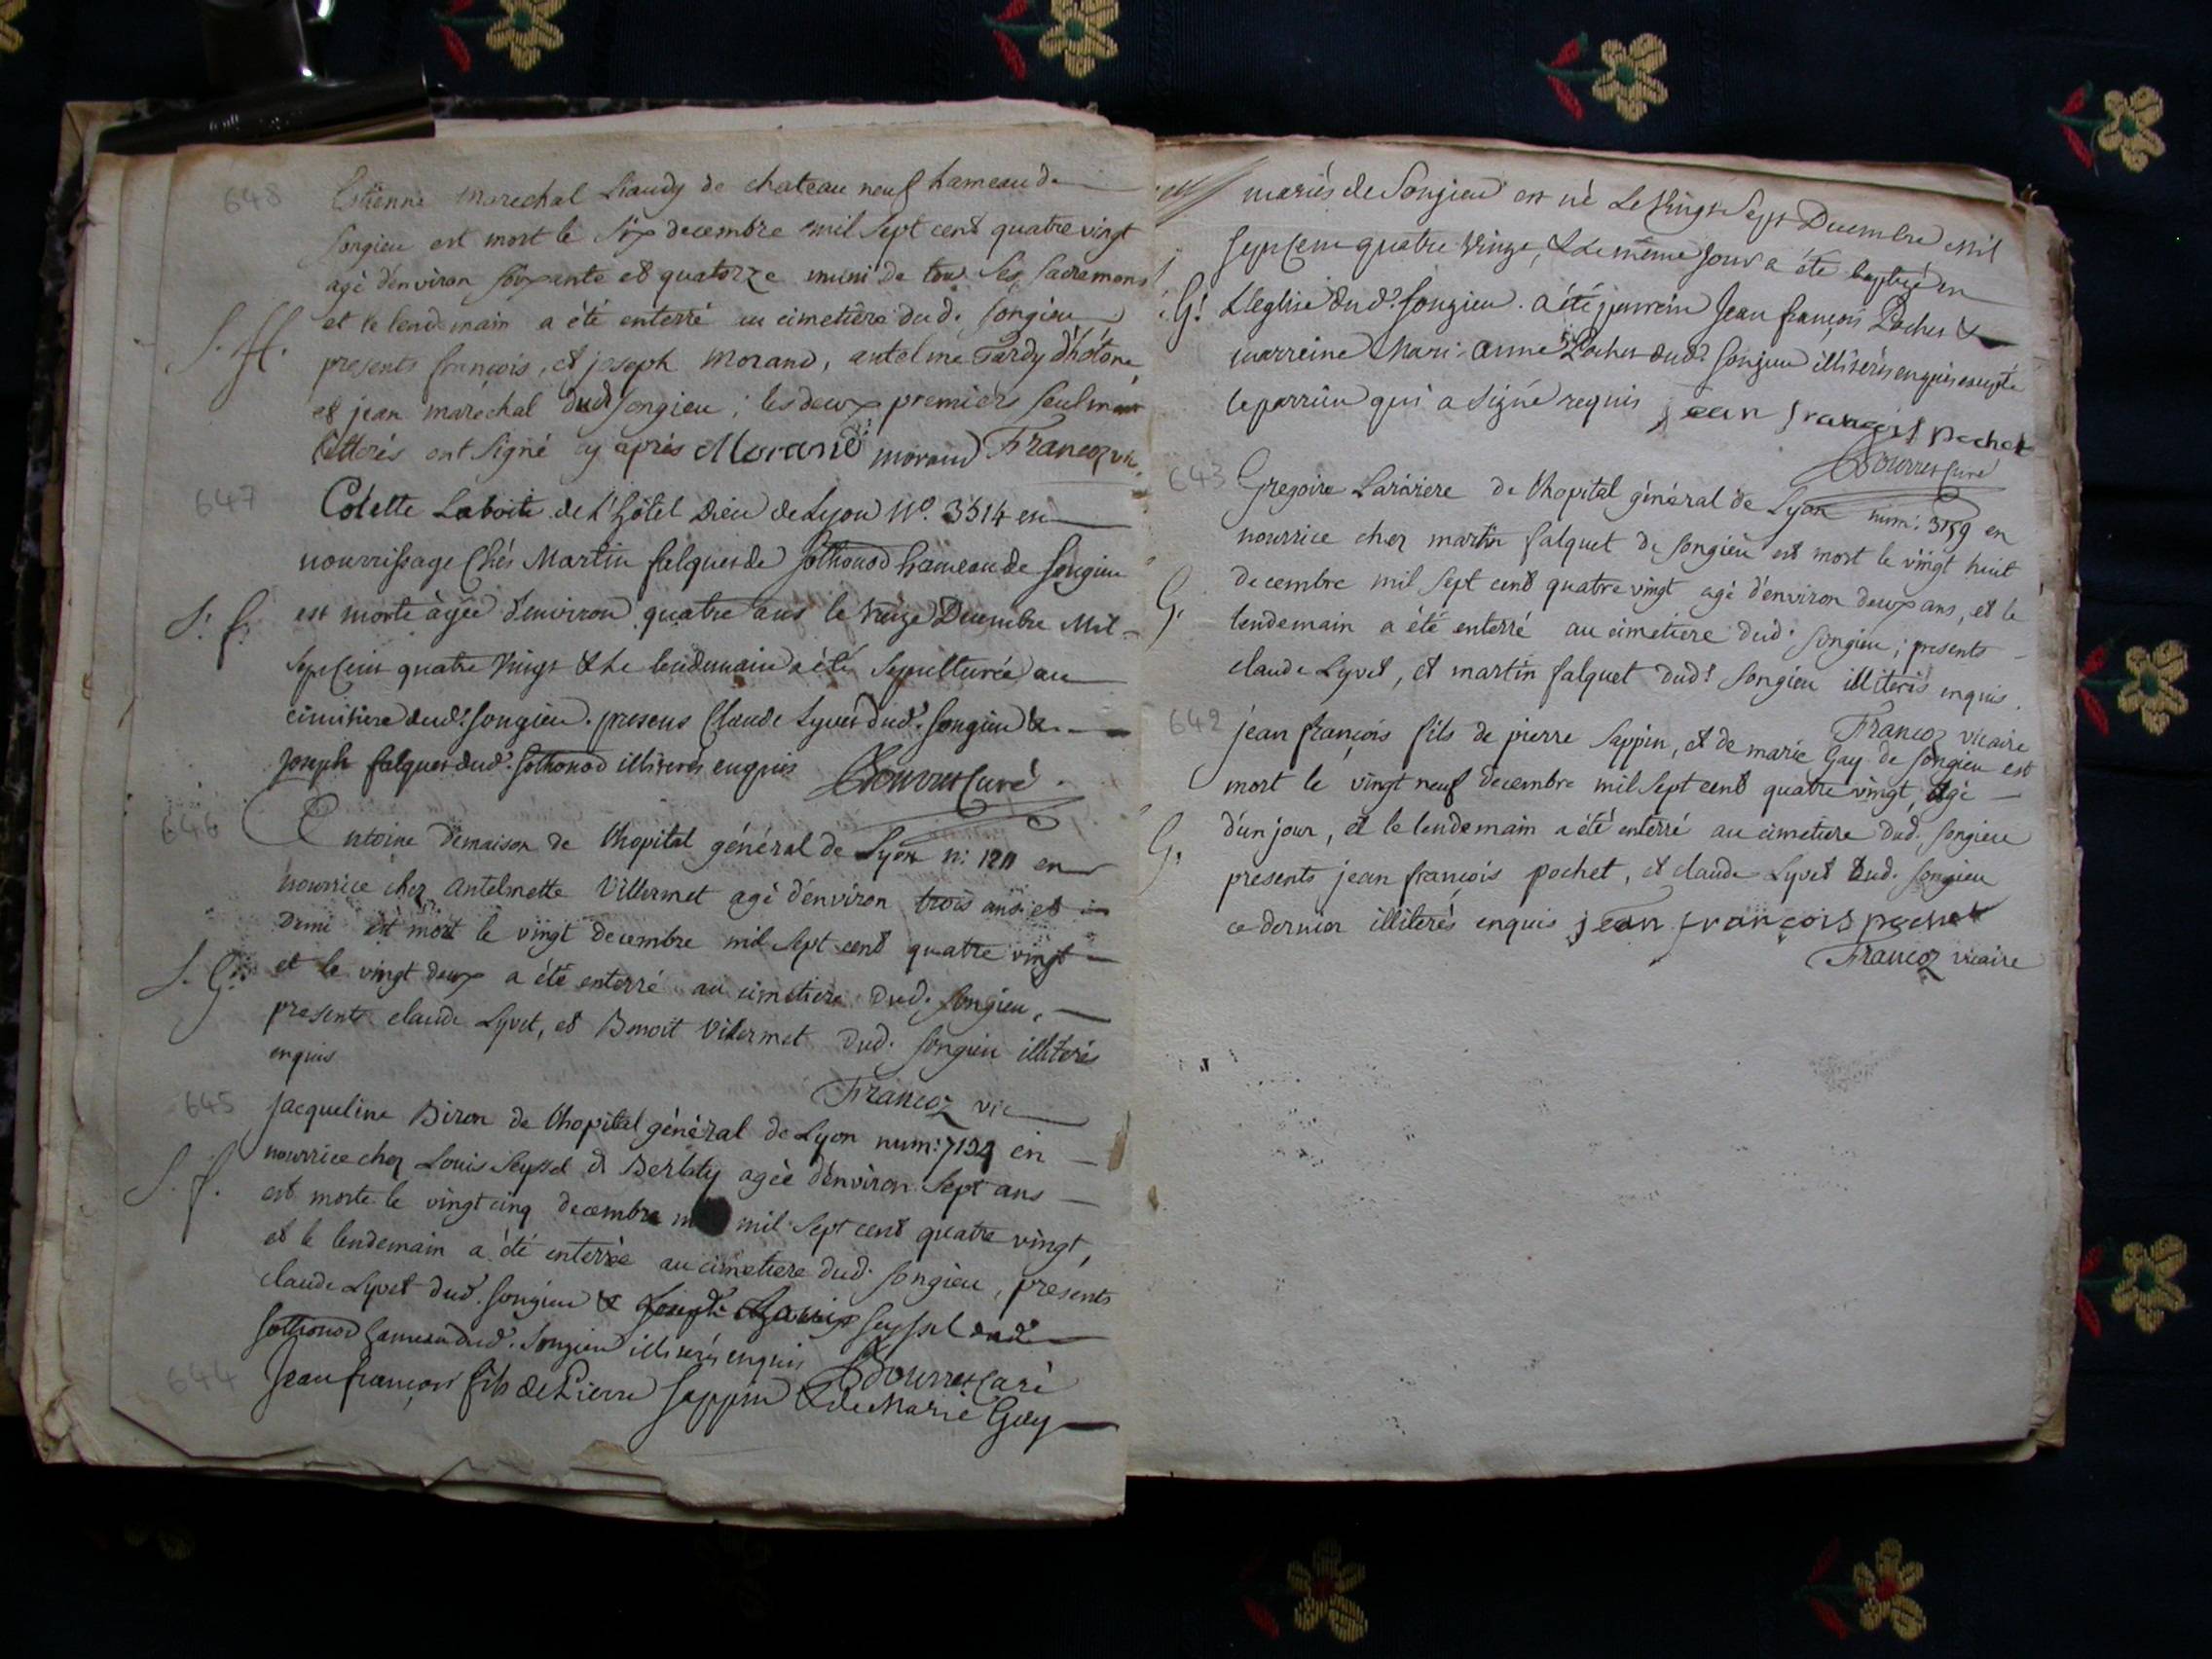 648
Estienne Marechal Liaudy de chateau neuf hameau de
Songieu est mort le six decembre mil sept cent quatre vingt
agé d'environ soixante et quatorze muni de tous ses sacremens
et le lendemain a été enterré au cimetière dud. Songieu
S. H.
presents françois, et joseph Morand, antelme Tardy d'hotône
et jean maréchal dud Songieu ; les deux premiers seulment
lettérés ont signé cy après Morand morand Francoz vic.
647
Colette Laboite de l'hôtel Dieu de Lyon N° 3514 en
nourrissage chés Martin falquet de Sothonod hameau de Songieu
est morte agée d'environ quatre ans le treize Decembre Mil
S. f.
Sept Cent quatre Vingt & le lendemain a été sepulturée au
cimitiere dud. Songieu. presens Claude Lyvet dud. Songieu &
Joseph falquet dud. Sothonod illiterés enquis Bourret Curé
646
Antoine Demaison de l'hopital général de Lyon n: 1211 en
nourrice chez Antelmette Villermet agé d'environ trois ans et
Demi est mort le vingt decembre mil sept cent quatre vingt
S. G.
et le vingt deux a été enterré au cimetiere dud. Songieu,
presents claude Lyvet, et Benoit Vilermet dud. Songieu illiterés
enquis
Francoz vic
645
Jacqueline Biron de l'hopital général de Lyon num: 7134 en
nourrice chez Louis Seyssel d Berlaty agée d'environ sept ans
S. f.
est morte le vingt cinq decembre mil sept cent quatre vingt,
et le lendemain a été enterrée au cimetiere dud. Songieu, présents
claude Lyvet dud. Songieu & Louis seyssel dud
Sothonod hameau dud. Songieu illiterés enquis Bourret Curé
644
Jean françois fils de Pierre Sappin & de Marie Gay
mariés de Songieu est né Le Vingt Sept Decembre Mil
Sept Cent quatre Vingt, & le même Jour a été baptisé en
G.
L'eglise dud. Songieu. a été parrein Jean françois Pochet &
marreine Mari-anne Pochet dud. Songieu illiterés enquis excepté
le parrein qui a signé requis jean françois pochet
Bourret Curé
643
Gregoire Lariviere de l'hopital général de Lyon num: 3159 en
nourrice chez martin falquet de Songieu est mort le vingt huit
decembre mil sept cent quatre vingt agé d'environ deux ans, et le
G.
lendemain a été enterré au cimetiere dud. Songieu ; presents
claude Lyvet, et martin falquet dud. Songieu illiterés enquis.
Francoz vicaire
642
jean françois fils de pierre Sappin, et de marie Gay de Songieu est
mort le vingt neuf decembre mil sept cent quatre vingt, agé
d'un jour, et le lendemain a été enterré au cimetiere dud. Songieu
G.
presents jean françois pochet, et claude Lyvet dud. Songieu
ce dernier illiterés enquis jean françois pochet
Francoz vicaire